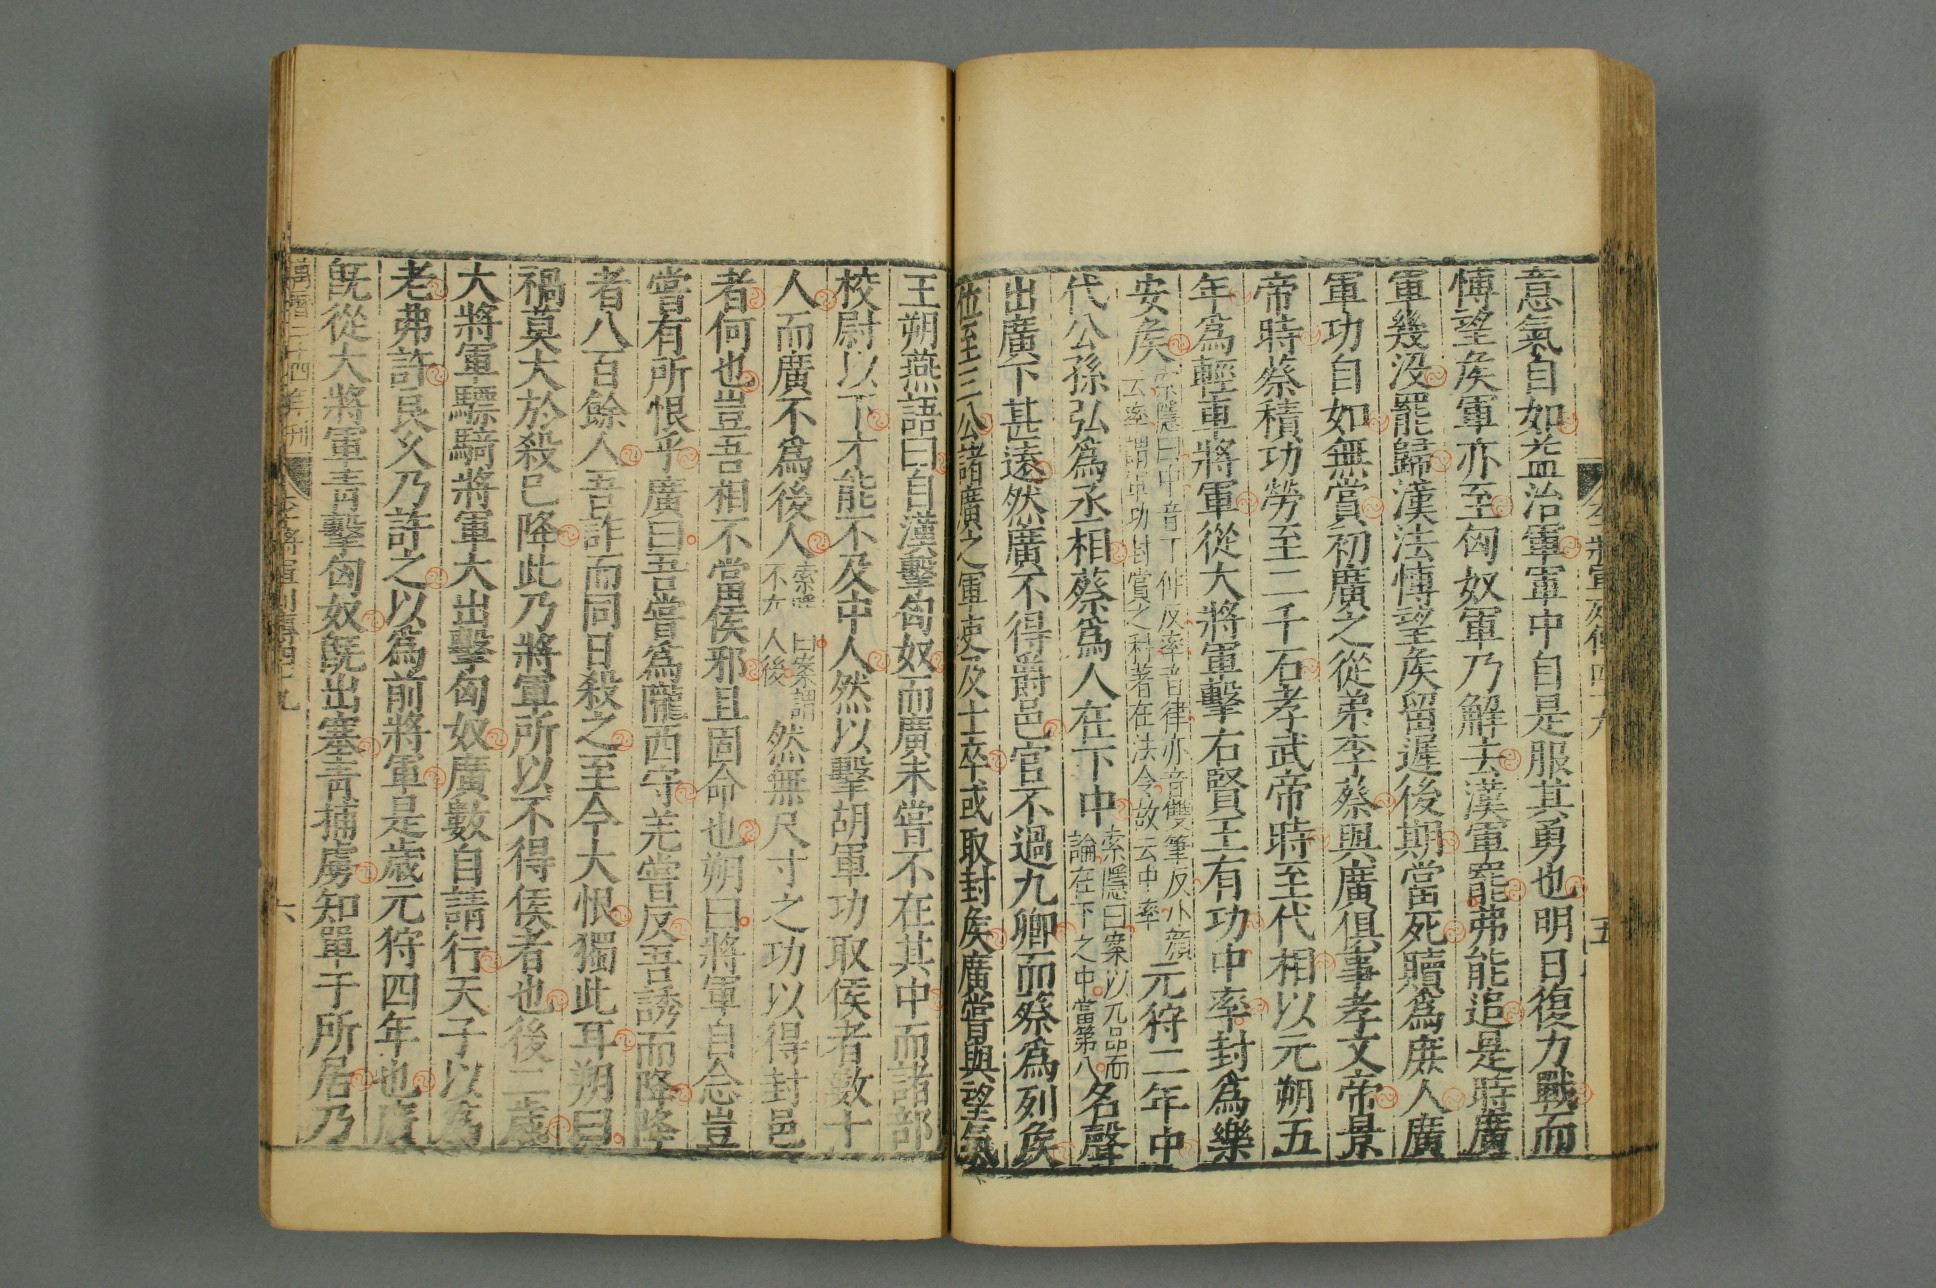 意氣自如益治軍軍中自是服其勇也明日復力戰而
博望侯軍亦至匈奴軍乃解去漢軍罷弗能追是時廣
軍幾沒罷歸漢法博望侯留遲後期當死贖爲庶人廣
軍功自如無賞初廣之從弟李蔡與廣俱事孝文帝景
帝時蔡積功勞至二千石孝武帝時至代相以元朔五
年爲輕車將軍從大將軍擊右賢王有功中率封爲樂
安侯索隱曰中音丁仲反率音律亦音雙筆反小顔
云率謂軍功封賞之科著在法令故云中率元狩二年中
代公孫弘爲丞相蔡爲人在下中索隱曰案以九品而
論在下之中當第八名聲
出廣下甚遠然廣不得爵邑官不過九卿而蔡爲列侯
位至三公諸廣之軍吏及士卒或取封侯廣嘗與望氣
李將軍列傳四十九
五
王朔燕語曰自漢擊匈奴而廣未嘗不在其中而諸部
校尉以下才能不及中人然以擊胡軍功取侯者數十
人而廣不爲後人索隱曰案謂
不在人後然無尺寸之功以得封邑
者何也豈吾相不當侯邪且固命也朔曰將軍自念豈
嘗有所恨乎廣曰吾嘗爲隴西守羌嘗反吾誘而降降
者八百餘人吾詐而同日殺之至今大恨獨此耳朔曰
禍莫大於殺已降此乃將軍所以不得侯者也後二歲
大將軍驃騎將軍大出擊匈奴廣數自請行天子以爲
老弗許良久乃許之以爲前將軍是歲元狩四年也廣
既從大將軍青擊匈奴既出塞青捕虜知單于所居乃
萬曆二十四年刊
李將軍列傳四十九
六